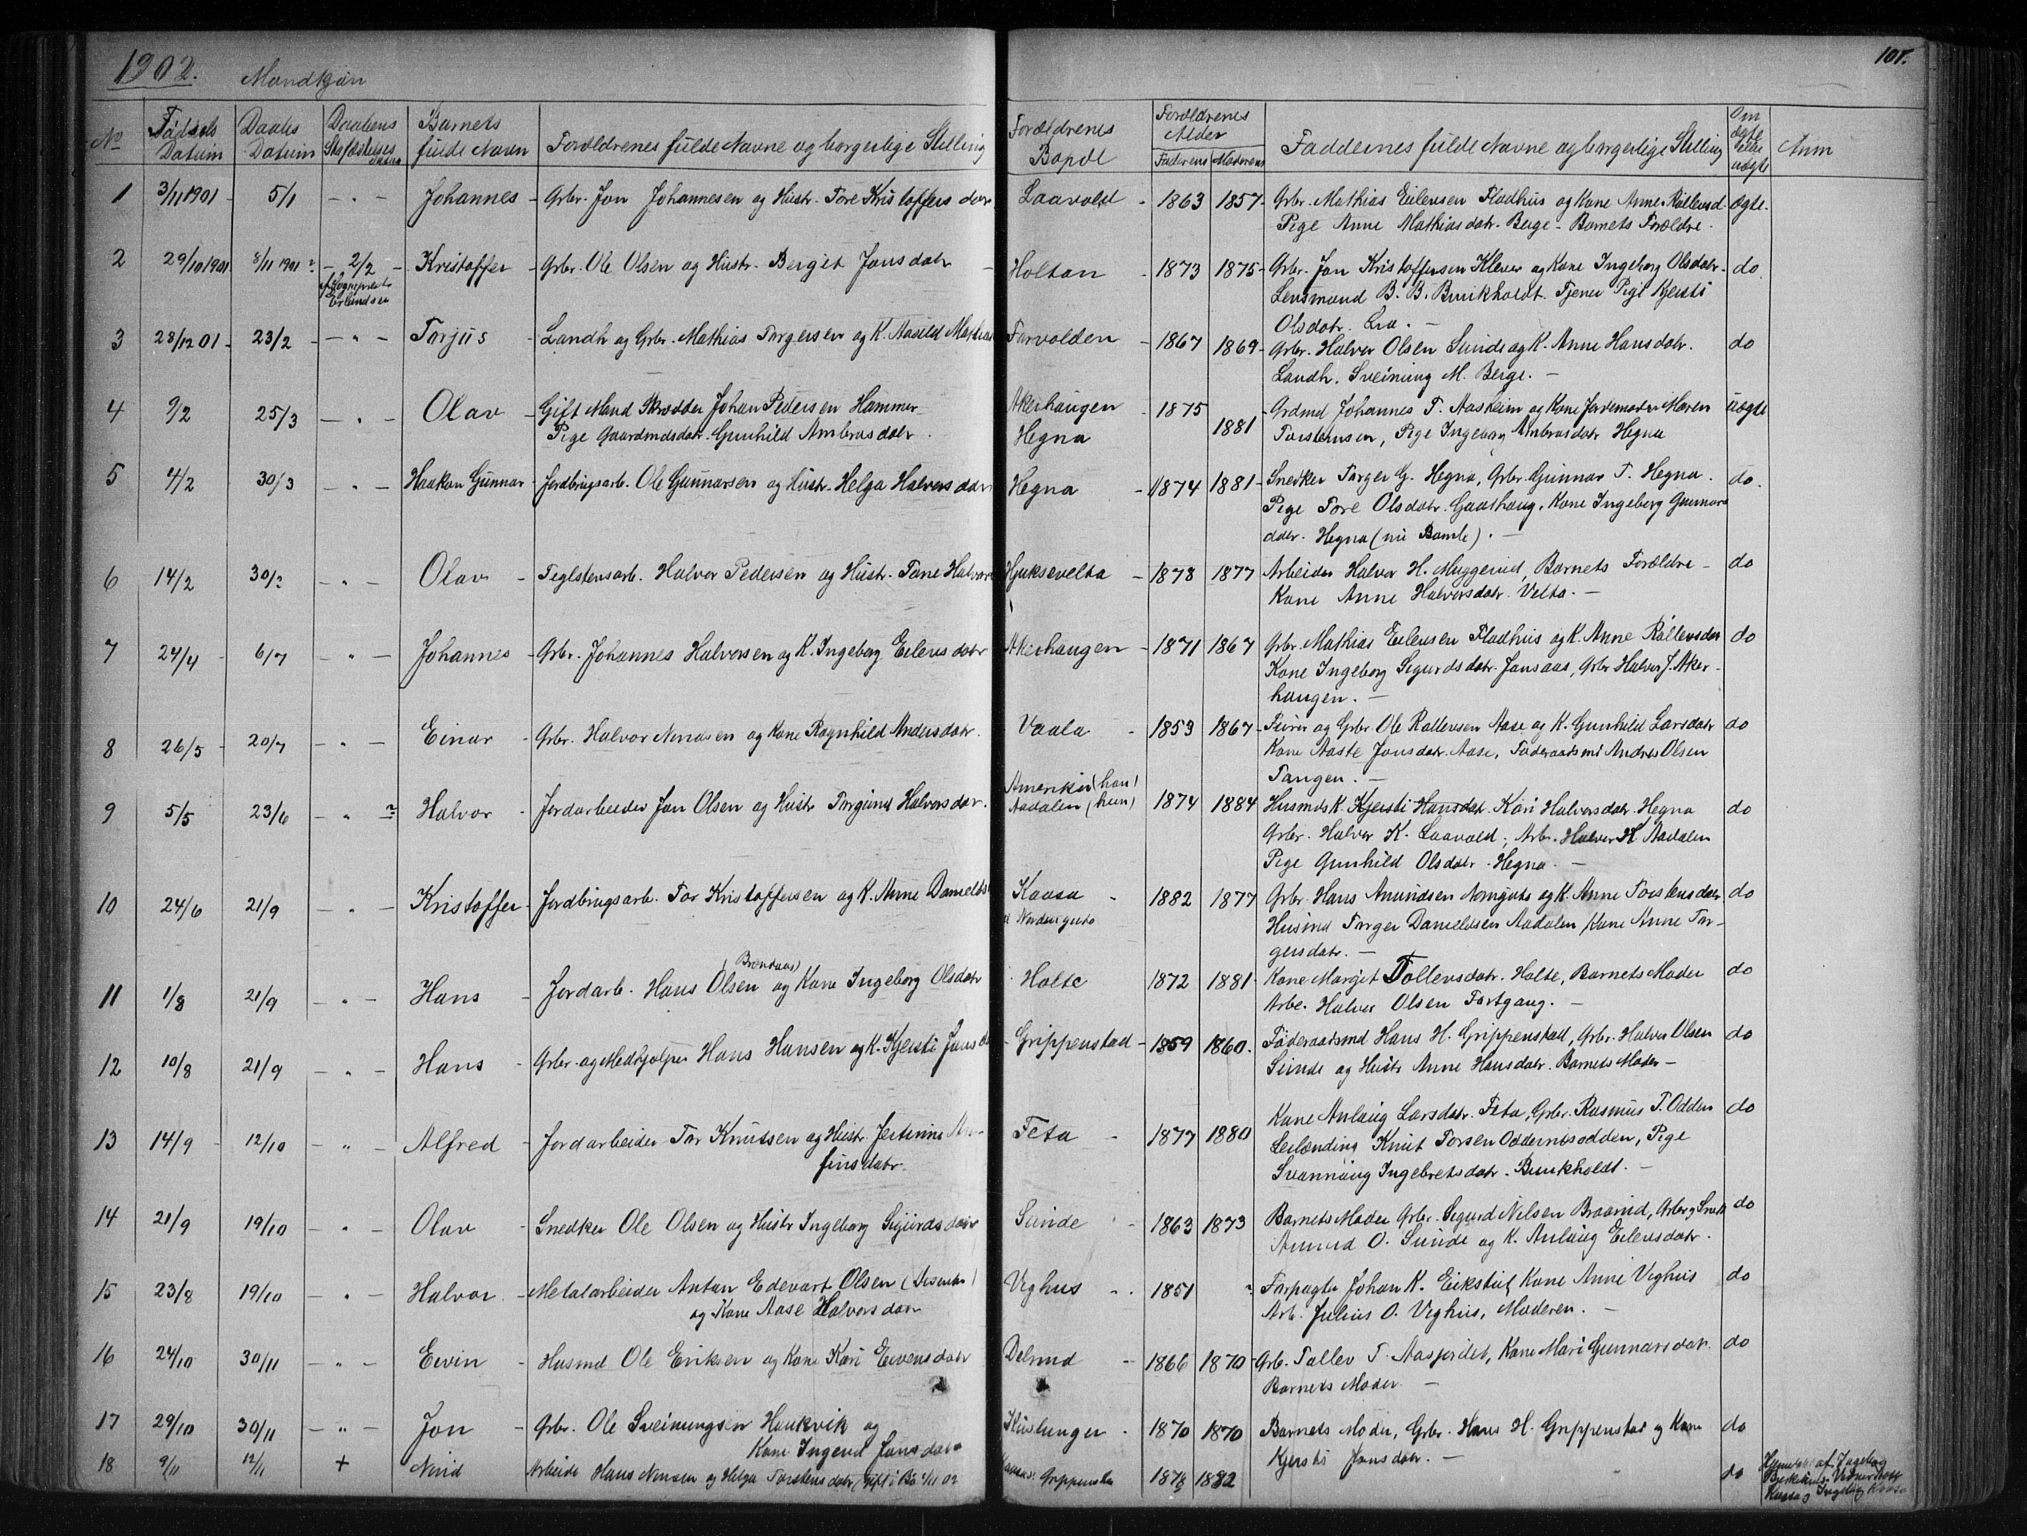 1902. Mandkjøn
101.
No Fødsels Datum Daabs Datum Daabens Stadfæstelses Datum Barnets fulde Navn Forældrenes fulde Navne og borgerlige Stilling Forældrenes Bopæl Forældrenes Alder Faderens Moderens Faddernes fulde Navne og borgerlige Stilling Om ægte eller uægte Anm
1 3/11 1901 - 5/1 - " - Johannes - Grbr. Jon Johannesen og Hustr. Tore Kristoffersdatr Laavold - 1863 1857 - Grbr. Mathias Eilevsen Flodhus og Kone Anne Rollevsd. ægte.
Pige Anne Mathiasdatr Berge - Barnets Forældre.
2 29/10 1901 8/11 1901 - 2/2 - Kristoffer - Grbr. Ole Olsen og Hustr. Bergit Jonsdatr - Holtan - 1873 1875 - Grbr. Jon Kristoffersen Klever og Kone Ingeborg Olsdatr - do.
af Sogneprest Erlandsen
Lensmand B. B. Bunkholdt. Tjener Pige Kjersti
Olsdatr. Lia. -
3 28/12 01 - 23/2 - " - Torjus - Landh. og Grbr. Mathias Torgersen og K. Aaseld Farvolden - 1867 1869 - Grbr. Halvor Olsen Sunde og K. Anne Hansdatr. do
Landh. Sveinung M. Berge. -
4 9/2 25/3 - " - Olav - Gift Mand Skrædder Johan Pedersen Hammer Akerhaugen - 1875 - Grdmd Johannes T. Aasheim og Kone Jordemoder Maren uægte
Pige Gaardmdsdatr. Gunhild Ambrosdatr. Hegna 1881 Torstensen, Pige Ingeborg Ambrosdatr Hegna
5 4/2 30/3 - " - Haakon Gunnar - Jordbrugsarb. Ole Gunnarsen og Hustr. Helga Halvorsdatr Hegna - 1874 1881 - Snedker Torger G. Hegna, Grbr. Gunnar T. Hegna. do.
Pige Tore Olsdatr. Gaathaug. Kone Ingeborg Gunnars
datr. Hegna (nu Bamle). -
6 14/2 30/3 - " - Olav - Teglstensarb. Halvor Pedersen og Hustr. Tone Halvors Hjuksevelta - 1878 1877 - Arbeider Halvor H. Muggerud, Barnets Forældre - do
Kone Anne Halvorsdatr. Velta. -
7 24/4 - 6/7 - " - Johannes - Grbr. Johannes Halvorsen og K. Ingeborg Eilevsdatr Akerhaugen - 1871 1867 - Grbr. Mathias Eilevsen Flodhus og K. Anne Rollevsdatr do
Kone Ingeborg Sigurdsdatr. Jonsaas, Grbr Halvor J. Aker-
haugen. -
8 26/5 - 20/7 - " - Einar - Grbr. Halvor Nirisen og Kone Ragnhild Andersdatr. Vaala - 1853 1867 - Furer og Grbr Ole Rollevsen Aase og K. Gunhild Larsdatr do
Kone Aaste Jonsdatr. Aase, Føderaadsmd Andres Olsen
Tangen. -
9 5/5 23/6 - " ? Halvor - Jordarbeider Jon Olsen og Hustr. Torgund Halvorsdatr. Amerika (han) Aadalen (hun) - 1874 1884 Husmds K. Kjersti Hansdatr. Kari Halvorsdatr. Hegna do
Grbr. Halvor K. Laavold; Arbr. Halvor K Aadalen
Pige Gunhild Olsdatr. Hegna. -
10 24/6 21/9 - " - Kristoffer - Jordbrugsarb. Tor Kristoffersen og K. Anne Danields Kaasa - 1882 1877 Grbr. Hans Amundsen og K. Anne Torstensdatr do
Husmd Torger Danieldsen Aadalen Kone Anne Tor-
gersdatr. -
11 1/8 21/9 - " - Hans - Jordarb. Hans Olsen (Brendaas) og Kone Ingeborg Olsdatr Holte 1872 1881 - Kone Margit Tollevsdatr. Holte, Barnets Moder do
Arbr. Halvor Olsen Fortgang. -
12 10/8 21/9 - " - Hans - Grbr. og Medhjælper Hans Hansen og K. Kjersti Jons - Grippenstad - 1859 1860. Føderaadsmd Hans H. Grippenstad, Grbr. Halvor Olsen do
Sunde og Hustr Anne Hansdatr. Barnets Moder -
13 14/9 12/10 " - Alfred - Jordarbeider Tor Knutsen og Hustr. Jertine An- Feta - 1877 1880 Kone Anlaug Larsdatr. Feta, Grbr. Rasmus T. Odden do
finsdatr. Leilænding Knut Torsen Oddernesodden, Pige
Svannaug Ingebretsdatr. Bunkholdt. -
14 21/9 19/10 - " - Olav - Snedker Ole Olsen og Hustr Ingeborg Sigurdsdatr Sunde - 1863 1873 Barnets Moder Grbr. Sigurd Nilsen Braarud, Grbr. og Snedk do
Amund O. Sunde og K. Anlaug Eilevsdatr.
15 23/8 19/10 - " - Halvor - Metalarbeider Anton Edevart Olsen Veghus - 1851 " Forpagter Johan K. Eikstul Kone Anne Veghus do
og Kone Aase Halvorsdatr Arb. Julius O. Veghus, Moderen. -
16 24/10 30/11 - " - Eivin - Husmd Ole Eriksen og Kone Kari Eivensdatr Delmd - 1866 1870 - Grb. Tollev T. Aasjordet, Kone Mari Gunnarsdatr. do
Barnets Moder. -
17 29/10 30/11 - " - Jon - Grbr. Ole Sveinungsen Haukvik og - 1870 1870 Barnets Moder, Grbr. Hans H. Grippenstad og Kone do
Kone Ingerid Jonsdatr Kjersti Jonsdatr. -
18 9/11 12/11 + Nirid Arbeider Hans Nirisen og Helga Torstensdatr (gift i Bø 1/11 02 Grippenstad 1878 1882 do Hjemdøbt af Ingeborg